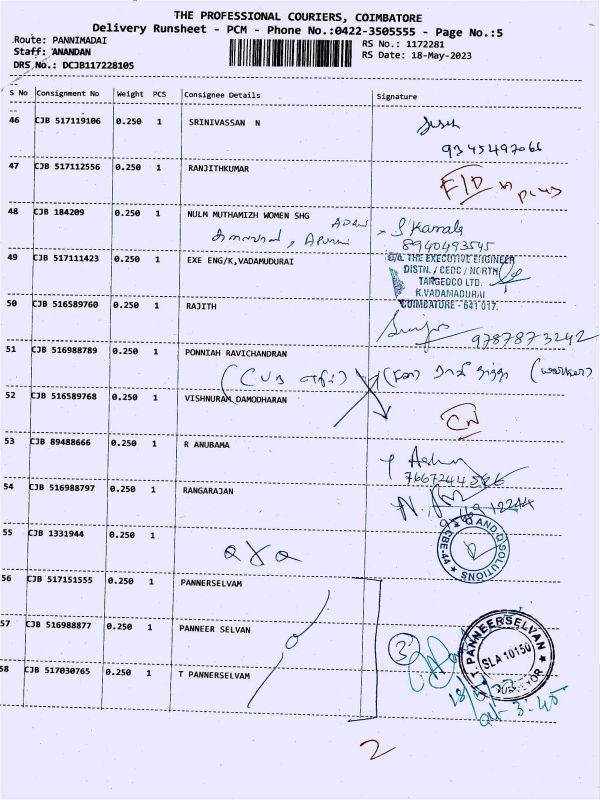 THE PROFESSIONAL COURIERS, COIMBATORE
Delivery Runsheet - PCM - Phone No.:0422-3505555 - Page No.:5
Route: PANNIMADAI
Staff: ANANDAN
DRS No.: DCJB117228105
RS No.: 1172281
RS Date: 18-May-2023
S No Consignment No Weight PCS Consignee Details Signature
46 CJB 517119106 0.250 1 SRINIVASSAN N
9345497066
47 CJB 517112556 0.250 1 RANJITHKUMAR
48 CJB 184209 0.250 1 NULM MUTHAMIZH WOMEN SHG
S Kamala
8940493545
49 CJB 517111423 0.250 1 EXE ENG/K,VADAMUDURAI
O/o. THE EXECUTIVE ENGINEER
DISTN. / CEDC / NORTH
TANGEDCO LTD.
K.VADAMADURAI
COIMBATORE - 641 017.
50 CJB 516589760 0.250 1 RAJITH
9787873242
51 CJB 516988789 0.250 1 PONNIAH RAVICHANDRAN
(worker)
52 CJB 516589768 0.250 1 VISHNURAM DAMODHARAN
CN
53 CJB 89488666 0.250 1 R ANUBAMA
54 CJB 516988797 0.250 1 RANGARAJAN
55 CJB 1331944 0.250 1
Q AND Q SOLUTIONS
★ CBE-44 ★
56 CJB 517151555 0.250 1 PANNERSELVAM
57 CJB 516988877 0.250 1 PANNEER SELVAN
3
T. PANNEERSELVAN
SLA 10150
SURVEYOR
58 CJB 517030765 0.250 1 T PANNERSELVAM
2